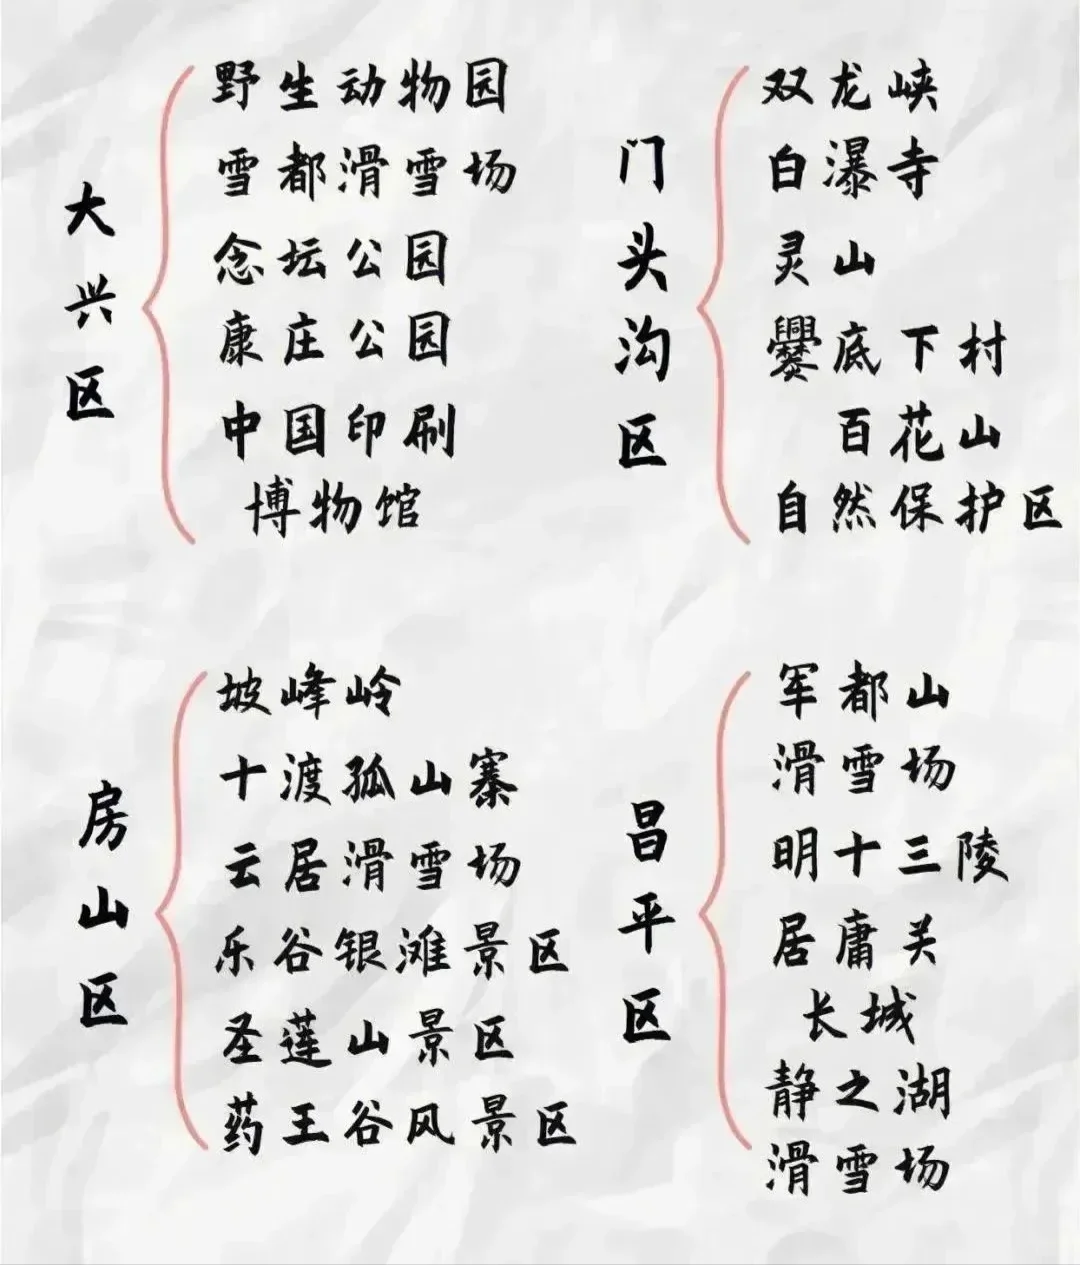 大兴区
野生动物园
雪都滑雪场
念坛公园
康庄公园
中国印刷
博物馆
门头沟区
双龙峡
白瀑寺
灵山
爨底下村
百花山
自然保护区
房山区
坡峰岭
十渡孤山寨
云居滑雪场
乐谷银滩景区
圣莲山景区
药王谷风景区
昌平区
军都山
滑雪场
明十三陵
居庸关
长城
静之湖
滑雪场